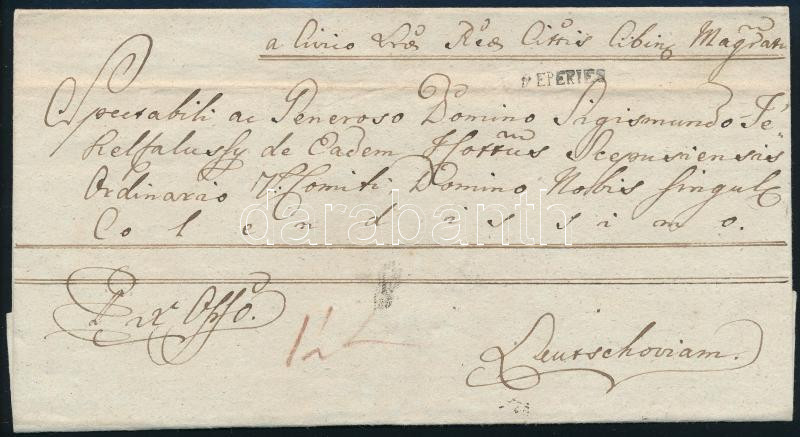 a Civico Lræ Ræ Cittis Cibin Magratu
EPERIES
Spectabili ac Generoso Domino Sigismundo Té-
kelfalussy de Eadem Icottus Scepusiensis
Ordinario V. Comiti, Domino Nobis singul
Colendissimo.
darabanth
Ex Offo.
12
Leutschoviam.